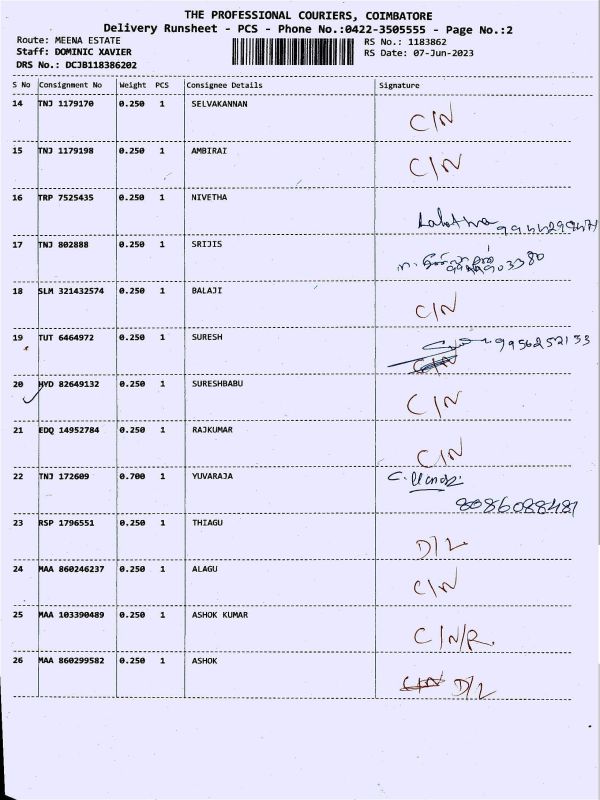 THE PROFESSIONAL COURIERS, COIMBATORE
Delivery Runsheet - PCS - Phone No.:0422-3505555 - Page No.:2
Route: MEENA ESTATE RS No.: 1183862
Staff: DOMINIC XAVIER RS Date: 07-Jun-2023
DRS No.: DCJB118386202
S No Consignment No Weight PCS Consignee Details Signature
14 TNJ 1179170 0.250 1 SELVAKANNAN
C/N
15 TNJ 1179198 0.250 1 AMBIRAI
C/N
16 TRP 7525435 0.250 1 NIVETHA
17 TNJ 802888 0.250 1 SRIJIS
18 SLM 321432574 0.250 1 BALAJI
C/N
19 TUT 6464972 0.250 1 SURESH
9956252133
C/N
20 HYD 82649132 0.250 1 SURESHBABU
C/N
21 EDQ 14952784 0.250 1 RAJKUMAR
C/N
22 TNJ 172609 0.700 1 YUVARAJA
8086088481
23 RSP 1796551 0.250 1 THIAGU
D/L
24 MAA 860246237 0.250 1 ALAGU
C/N
25 MAA 103390489 0.250 1 ASHOK KUMAR
C/N/R
26 MAA 860299582 0.250 1 ASHOK
C/N D/L